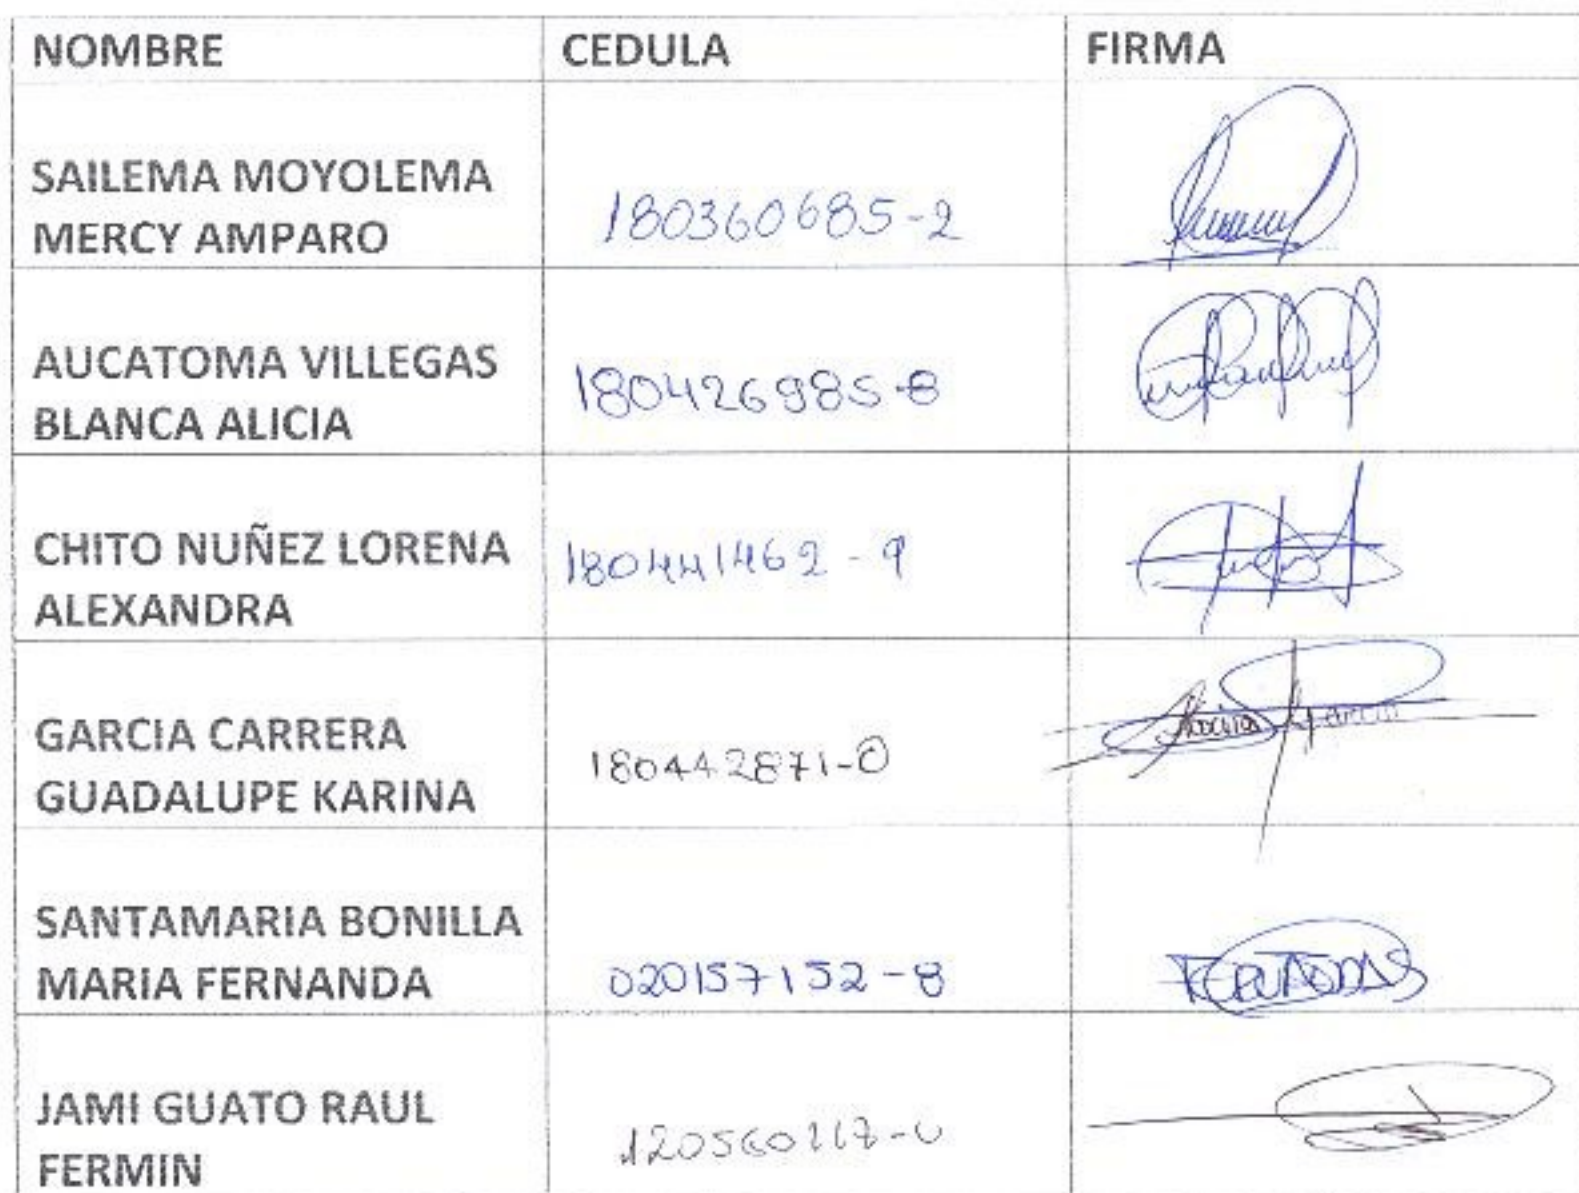 NOMBRE CEDULA FIRMA
SAILEMA MOYOLEMA
MERCY AMPARO 180360685-2
AUCATOMA VILLEGAS
BLANCA ALICIA 180426985-8
CHITO NUÑEZ LORENA 180441462-9
ALEXANDRA
GARCIA CARRERA
GUADALUPE KARINA 180442871-0
SANTAMARIA BONILLA
MARIA FERNANDA 020157152-8
JAMI GUATO RAUL
FERMIN